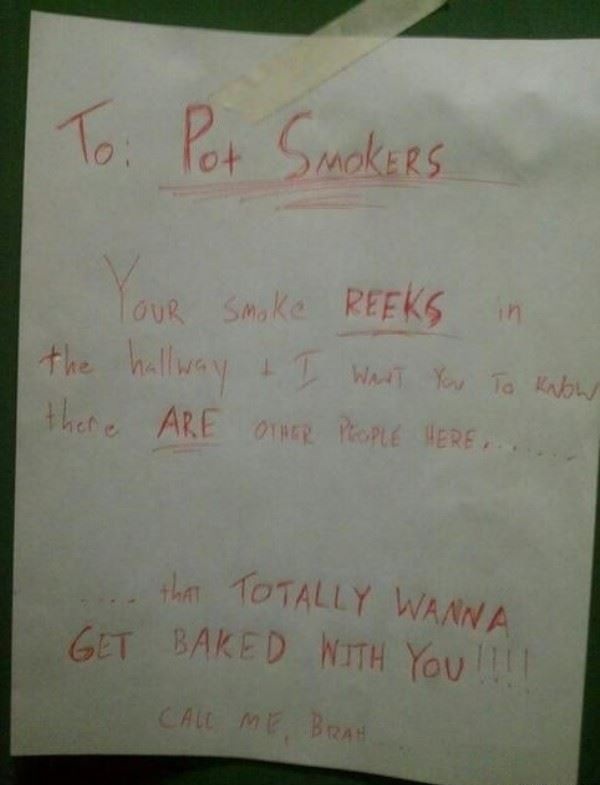 To: Pot SMOKERS
YOUR SMoKe REEKS in
the hallway + I WANT You To KNOW
there ARE OTHER PEOPLE HERE.......
.... thAT TOTALLY WANNA
GET BAKED WITH YOU!!!!
CALL ME, BRAH...